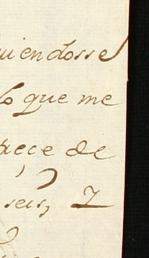 uiendosse
lo que me
rece de
seis, 2